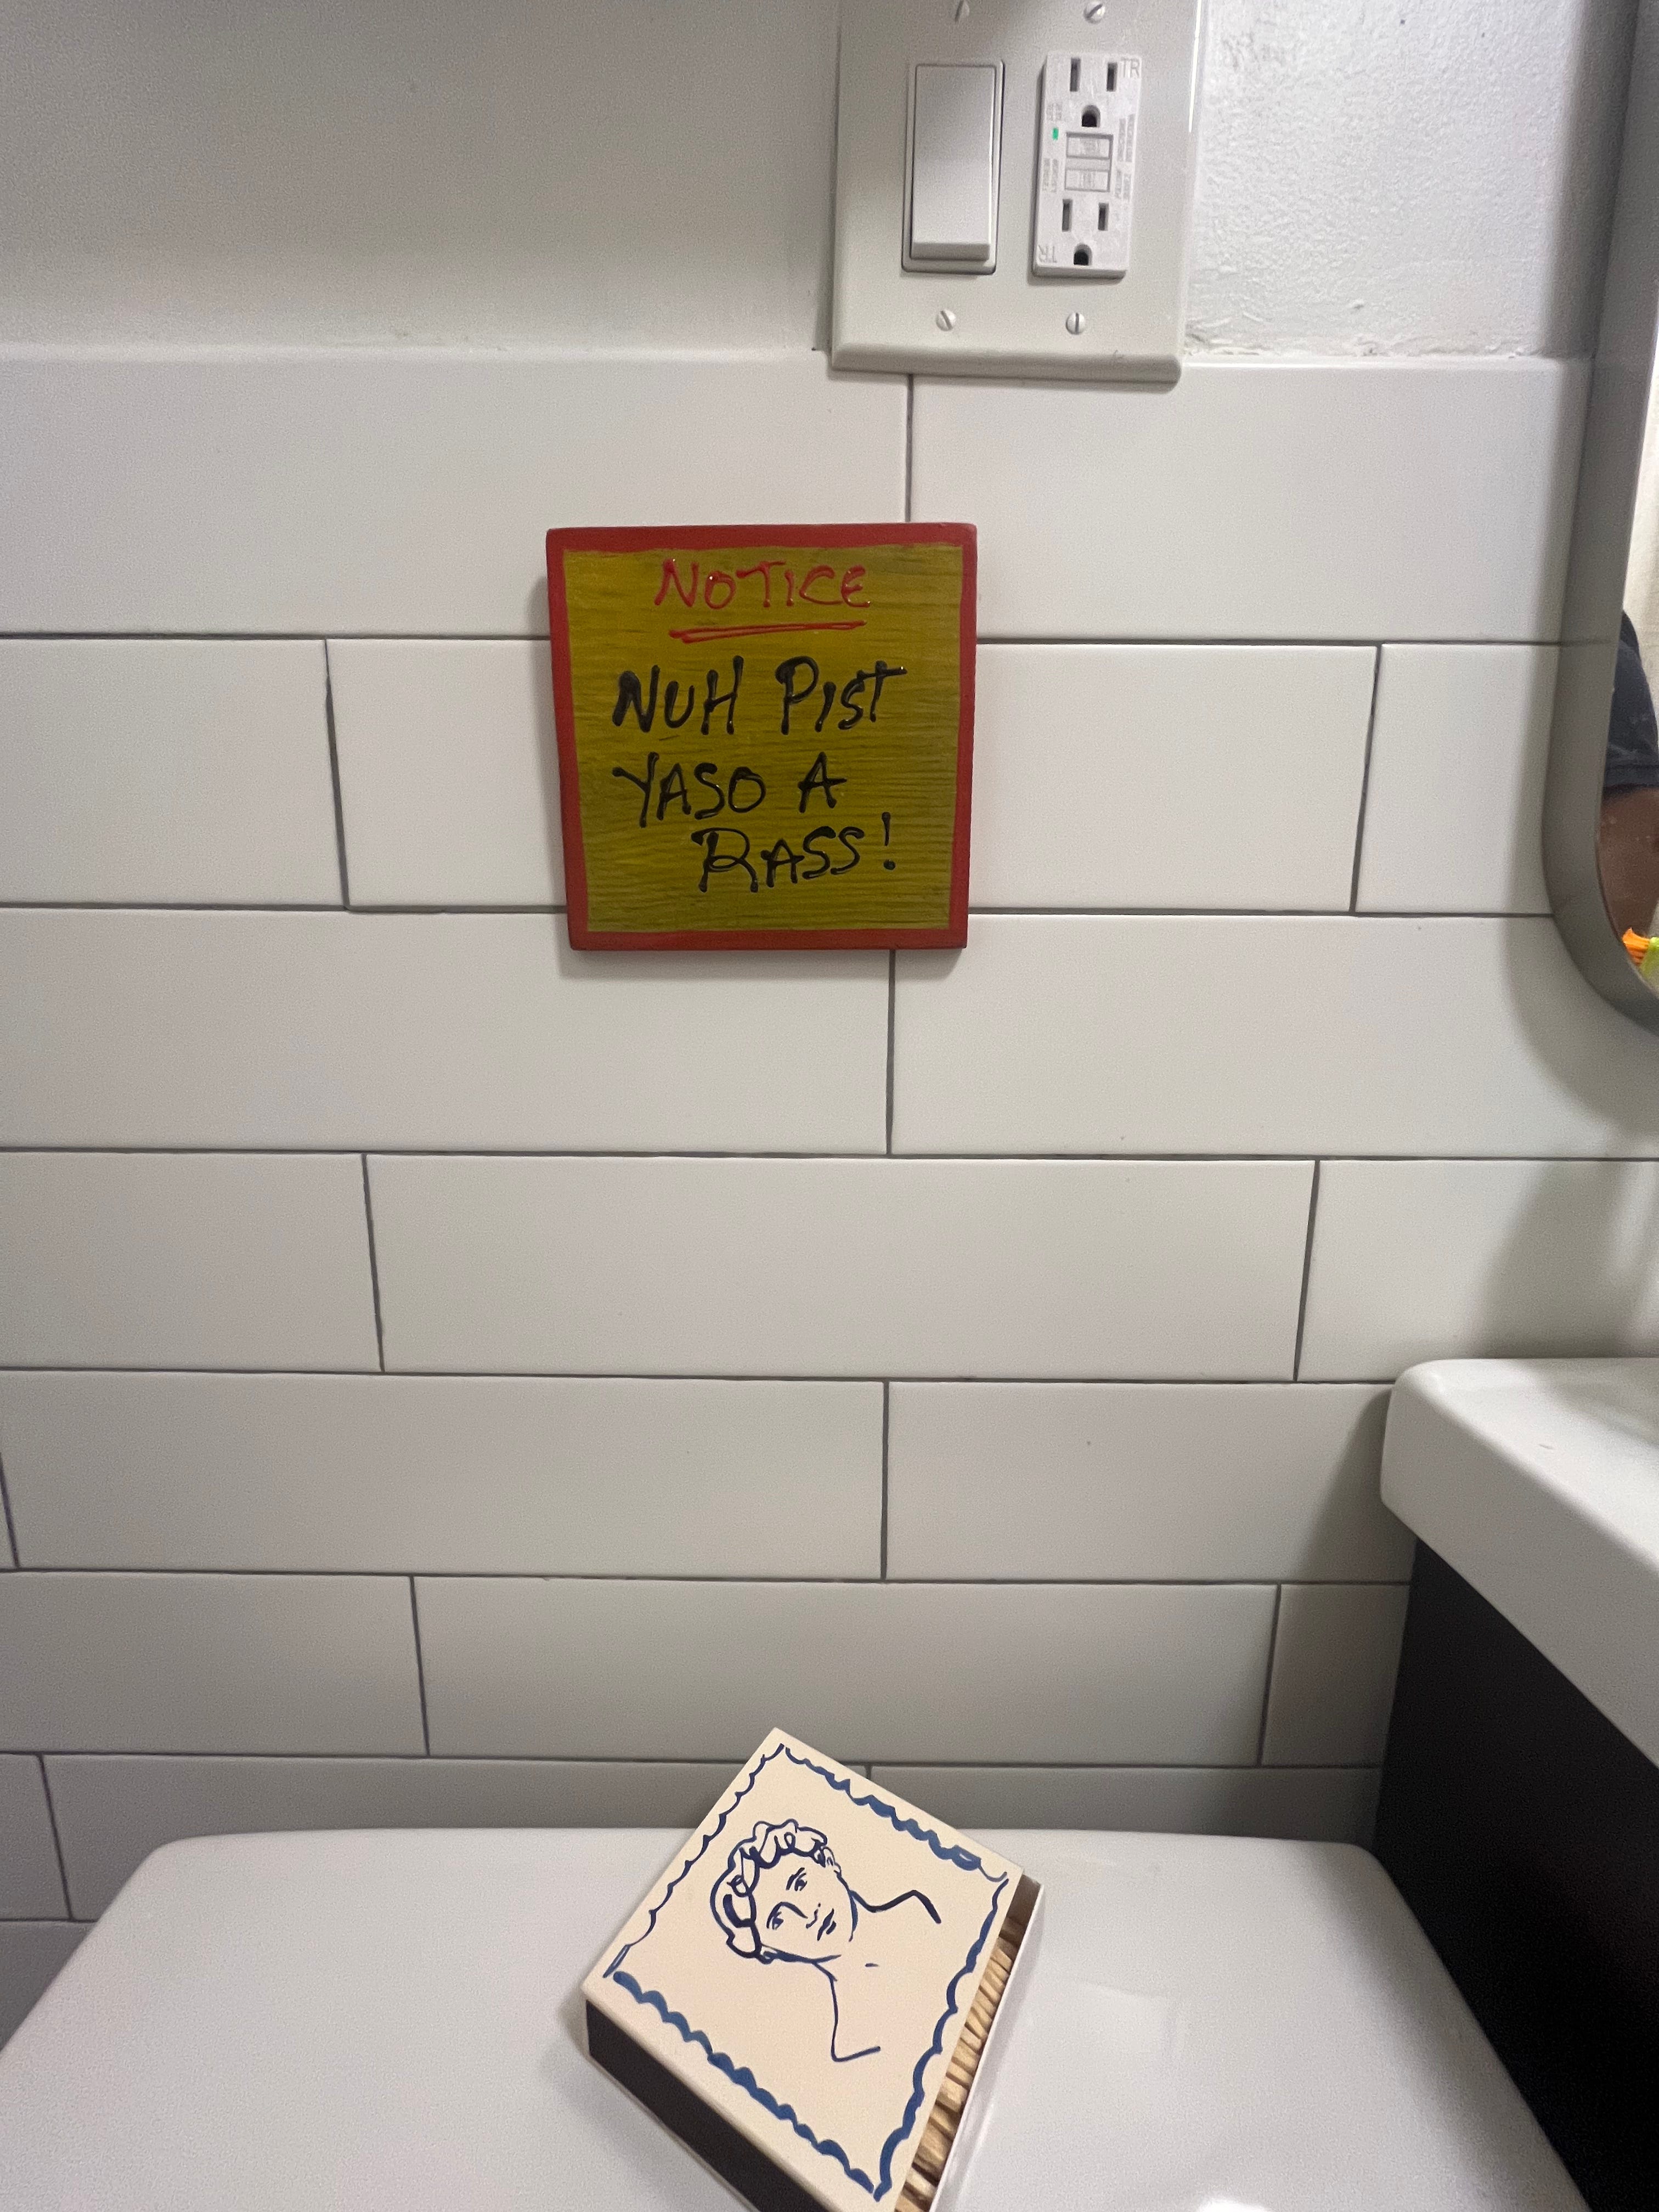 TR
TR
NOTICE
NUH PIST
YASO A
RASS!